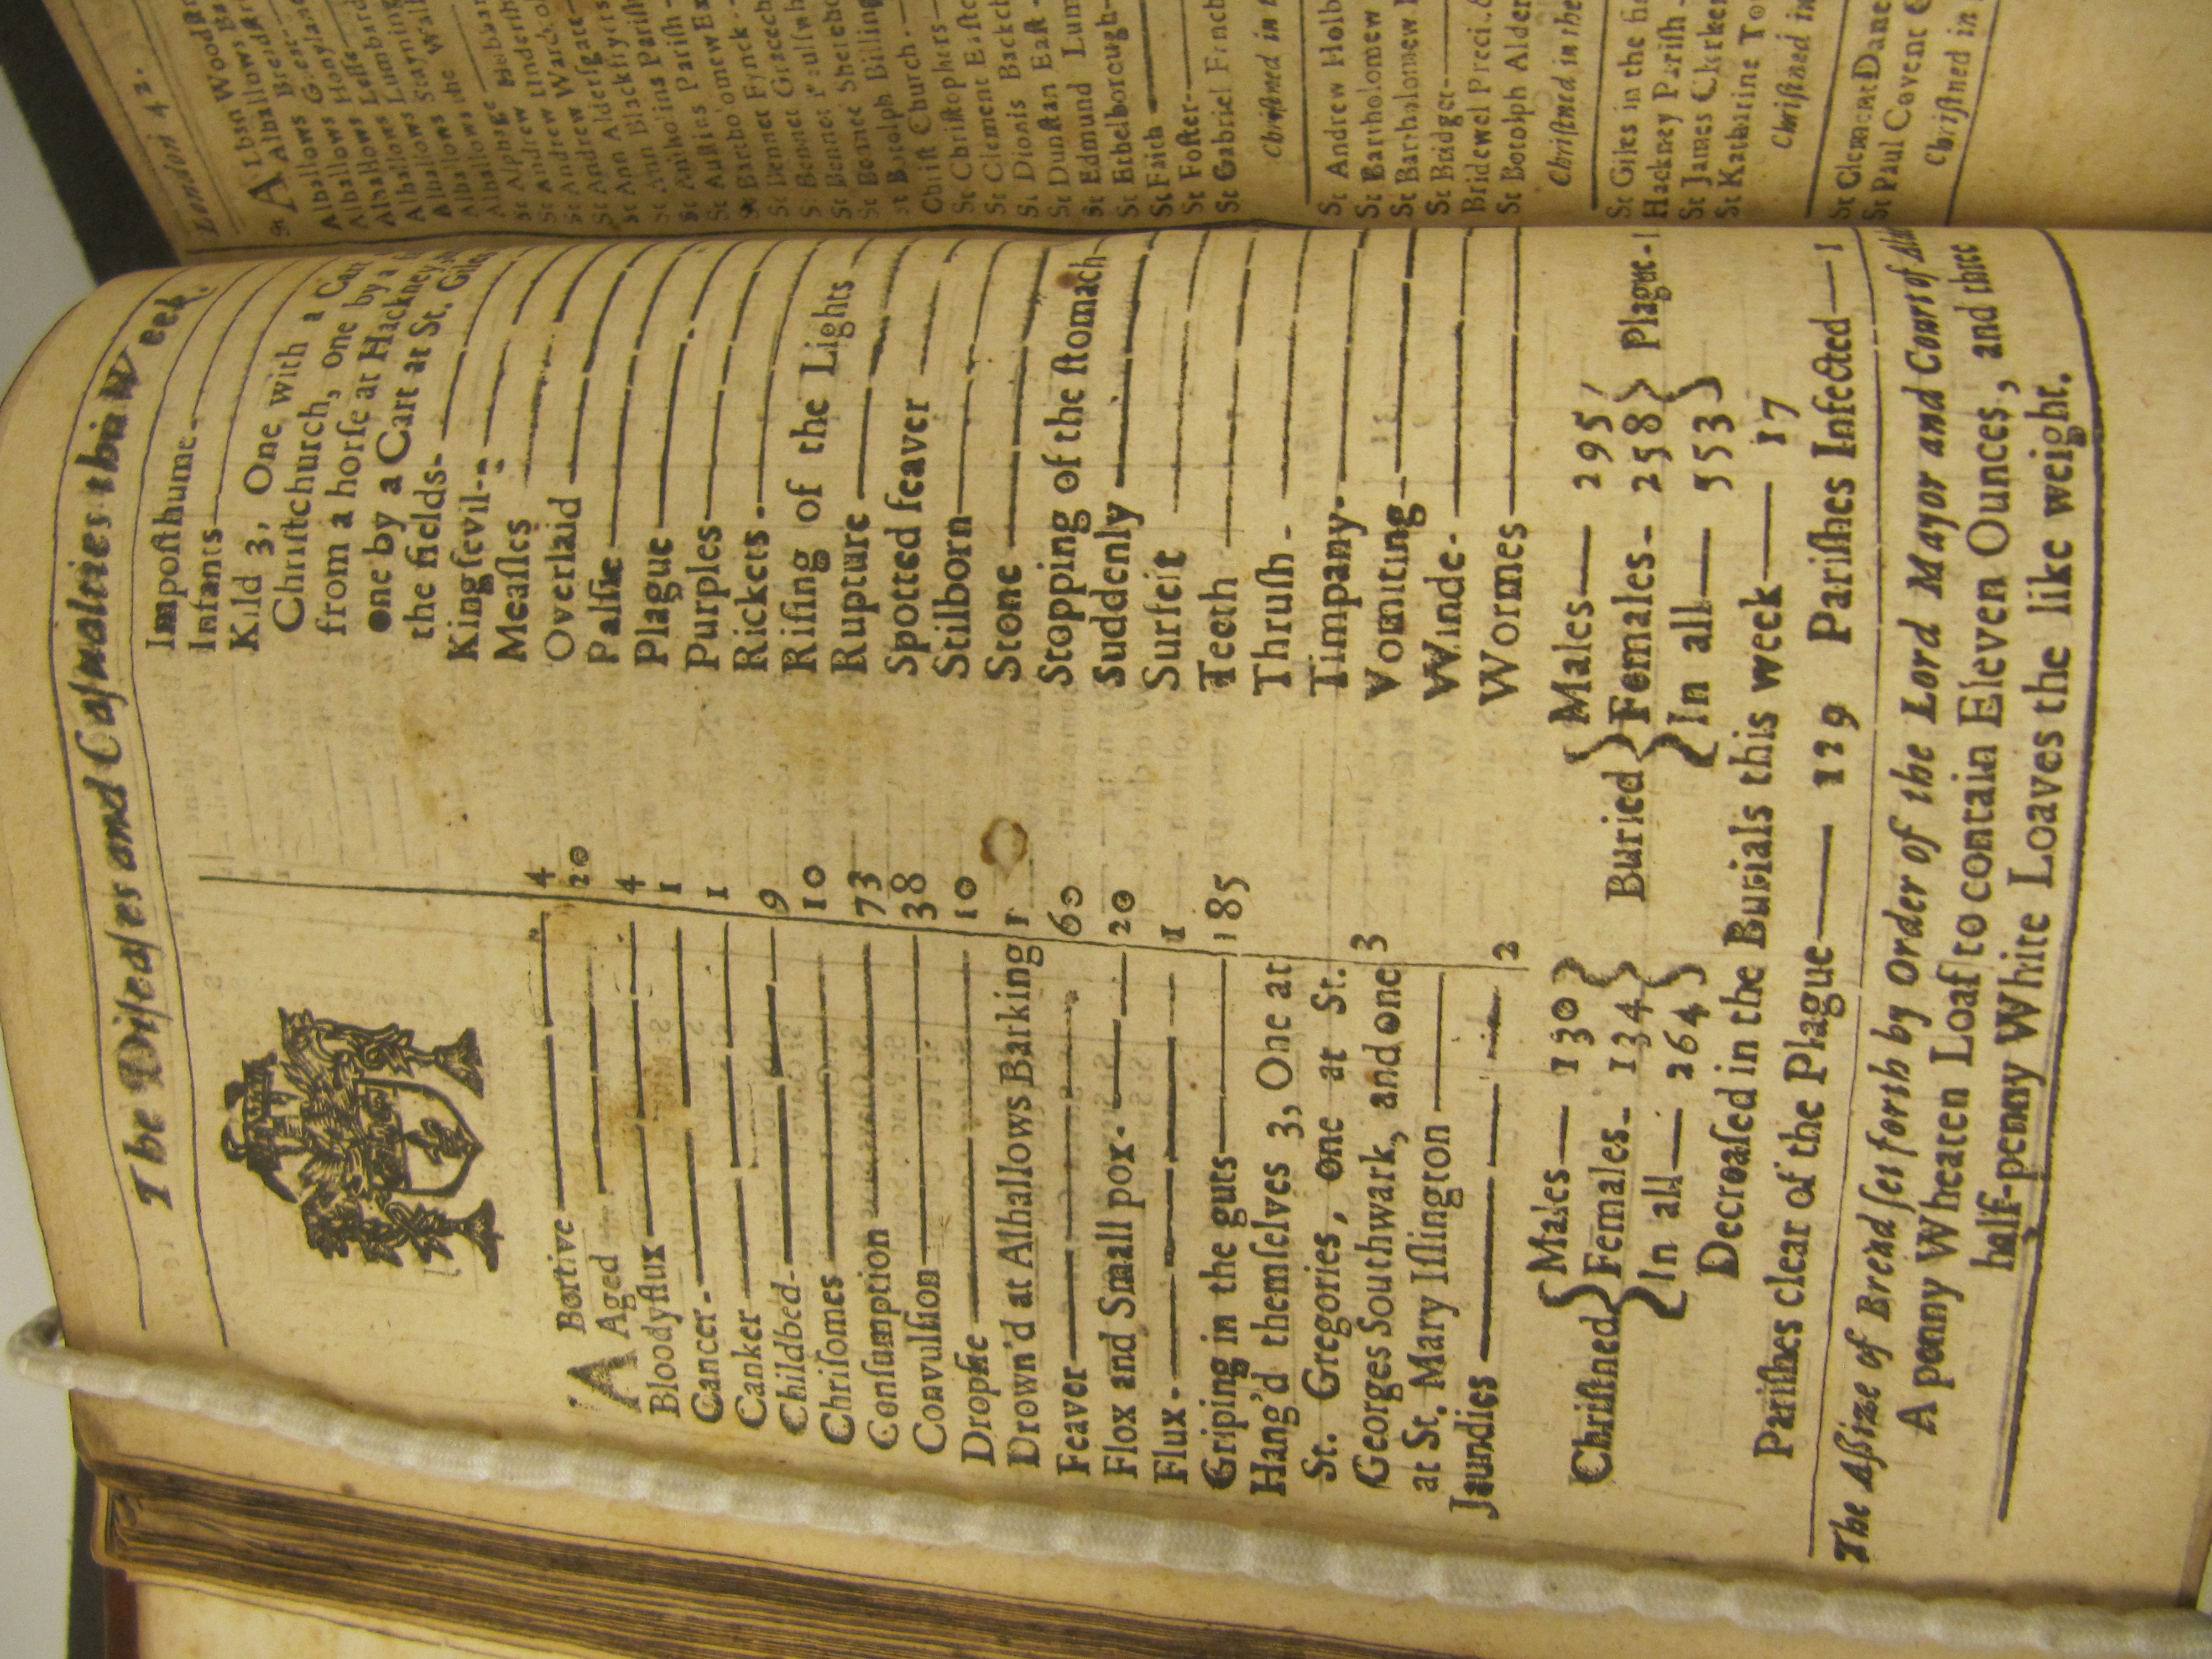 The Diſeaſes and Caſualties this Week.
ABortive 4
Aged 20
Bloodyflux 4
Cancer 1
Canker 1
Childbed 9
Chriſomes 10
Conſumption 73
Convulſion 38
Dropſie 10
Drown'd at Alhallows Barking 1
Feaver 60
Flox and Small pox 20
Flux 1
Griping in the guts 185
Hang'd themſelves 3, One at
St. Gregories, one at St.
Georges Southwark, and one 3
at St. Mary Iſlington
Jaundies 2
Impoſthume
Infants
Kild 3, One with a
Chriſtchurch, one by a
from a horſe at Hackney
one by a Cart at St. Giles
the fields
Kingſevil
Meaſles
Overlaid
Palſie
Plague
Purples
Rickets
Riſing of the Lights
Rupture
Spotted feaver
Stilborn
Stone
Stopping of the ſtomach
Suddenly
Surfeit
Teeth
Thruſh
Timpany
Vomiting
Winde
Wormes
Chriſtned { Males— 130 } { Females- 134 } { In all— 264 }
Buried { Males— 295 } { Females- 258 } { In all— 553 } Plague-1
Decreaſed in the Burials this week— 17
Pariſhes clear of the Plague— 129 Pariſhes Infected—1
The Aſſize of Bread ſet forth by Order of the Lord Mayor and Court of
A penny Wheaten Loaf to contain Eleven Ounces, and three
half-penny White Loaves the like weight.
London 42.
St ALban Wood
Alhallows
Alhallows
Alhallows
Alhallows
Alhallows
Alhallows
Alhallows
Alhallows the Wall
Alhallows
St Alphage
St Andrew
St Andrew
St Andrew
St Ann Alderſgate
St Ann Blackfryers
St Pariſh
St Auſtins Pariſh
St Bartholomew Ex
St Bennet Fynck
St Bennet Gracech
St Bennet
St Bennet
St Botolph Billing
Chriſt Church.
St Chriſtophers
St Clement Eaſtc
St Dionis Backch
St Dunſtan Eaſt
St Edmund Lum
St Ethelborough
St Faith
St Foſter
St Gabriel Fench
Chriſtned in
St Andrew Holb
St Bartholomew
St Bartholomew
St Bridget
Bridewel Preci
St Botolph Alder
Chriſtned in the
St Giles in the
Hackney Pariſh
St James Clerken
St Katharine To
Chriſtned in
St Clement Dane
St Paul Covent
Chriſtned in